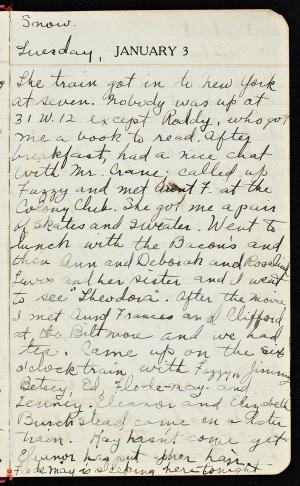 Snow.
Tuesday, JANUARY 3
The train got in to New York
at seven. Nobody was up at
31 W. 12 except Roddy, who got
me a book to read. After
breakfast, had a nice chat
with Mr. Crane, called up
Fuzzy and met Aunt F. at the
Colony Club. She got me a pair
of skates and sweater. Went to
lunch with the Bacons and
then Ann and Deborah and Rosalind
and her sister and I went
to see "Theodora". After the movie
I met Aunt Frances and Clifford
at the Biltmore and we had
tea. Came up on the six
o'clock train with Fuzzy, Jimmy
Betsey, Ed, Flode-may and
Jenney. Eleanor and Elizabeth
Burchstead came on a later
train. Kay hasn't come yet
Eleanor has put up her hair
Flode May is sleeping here tonight